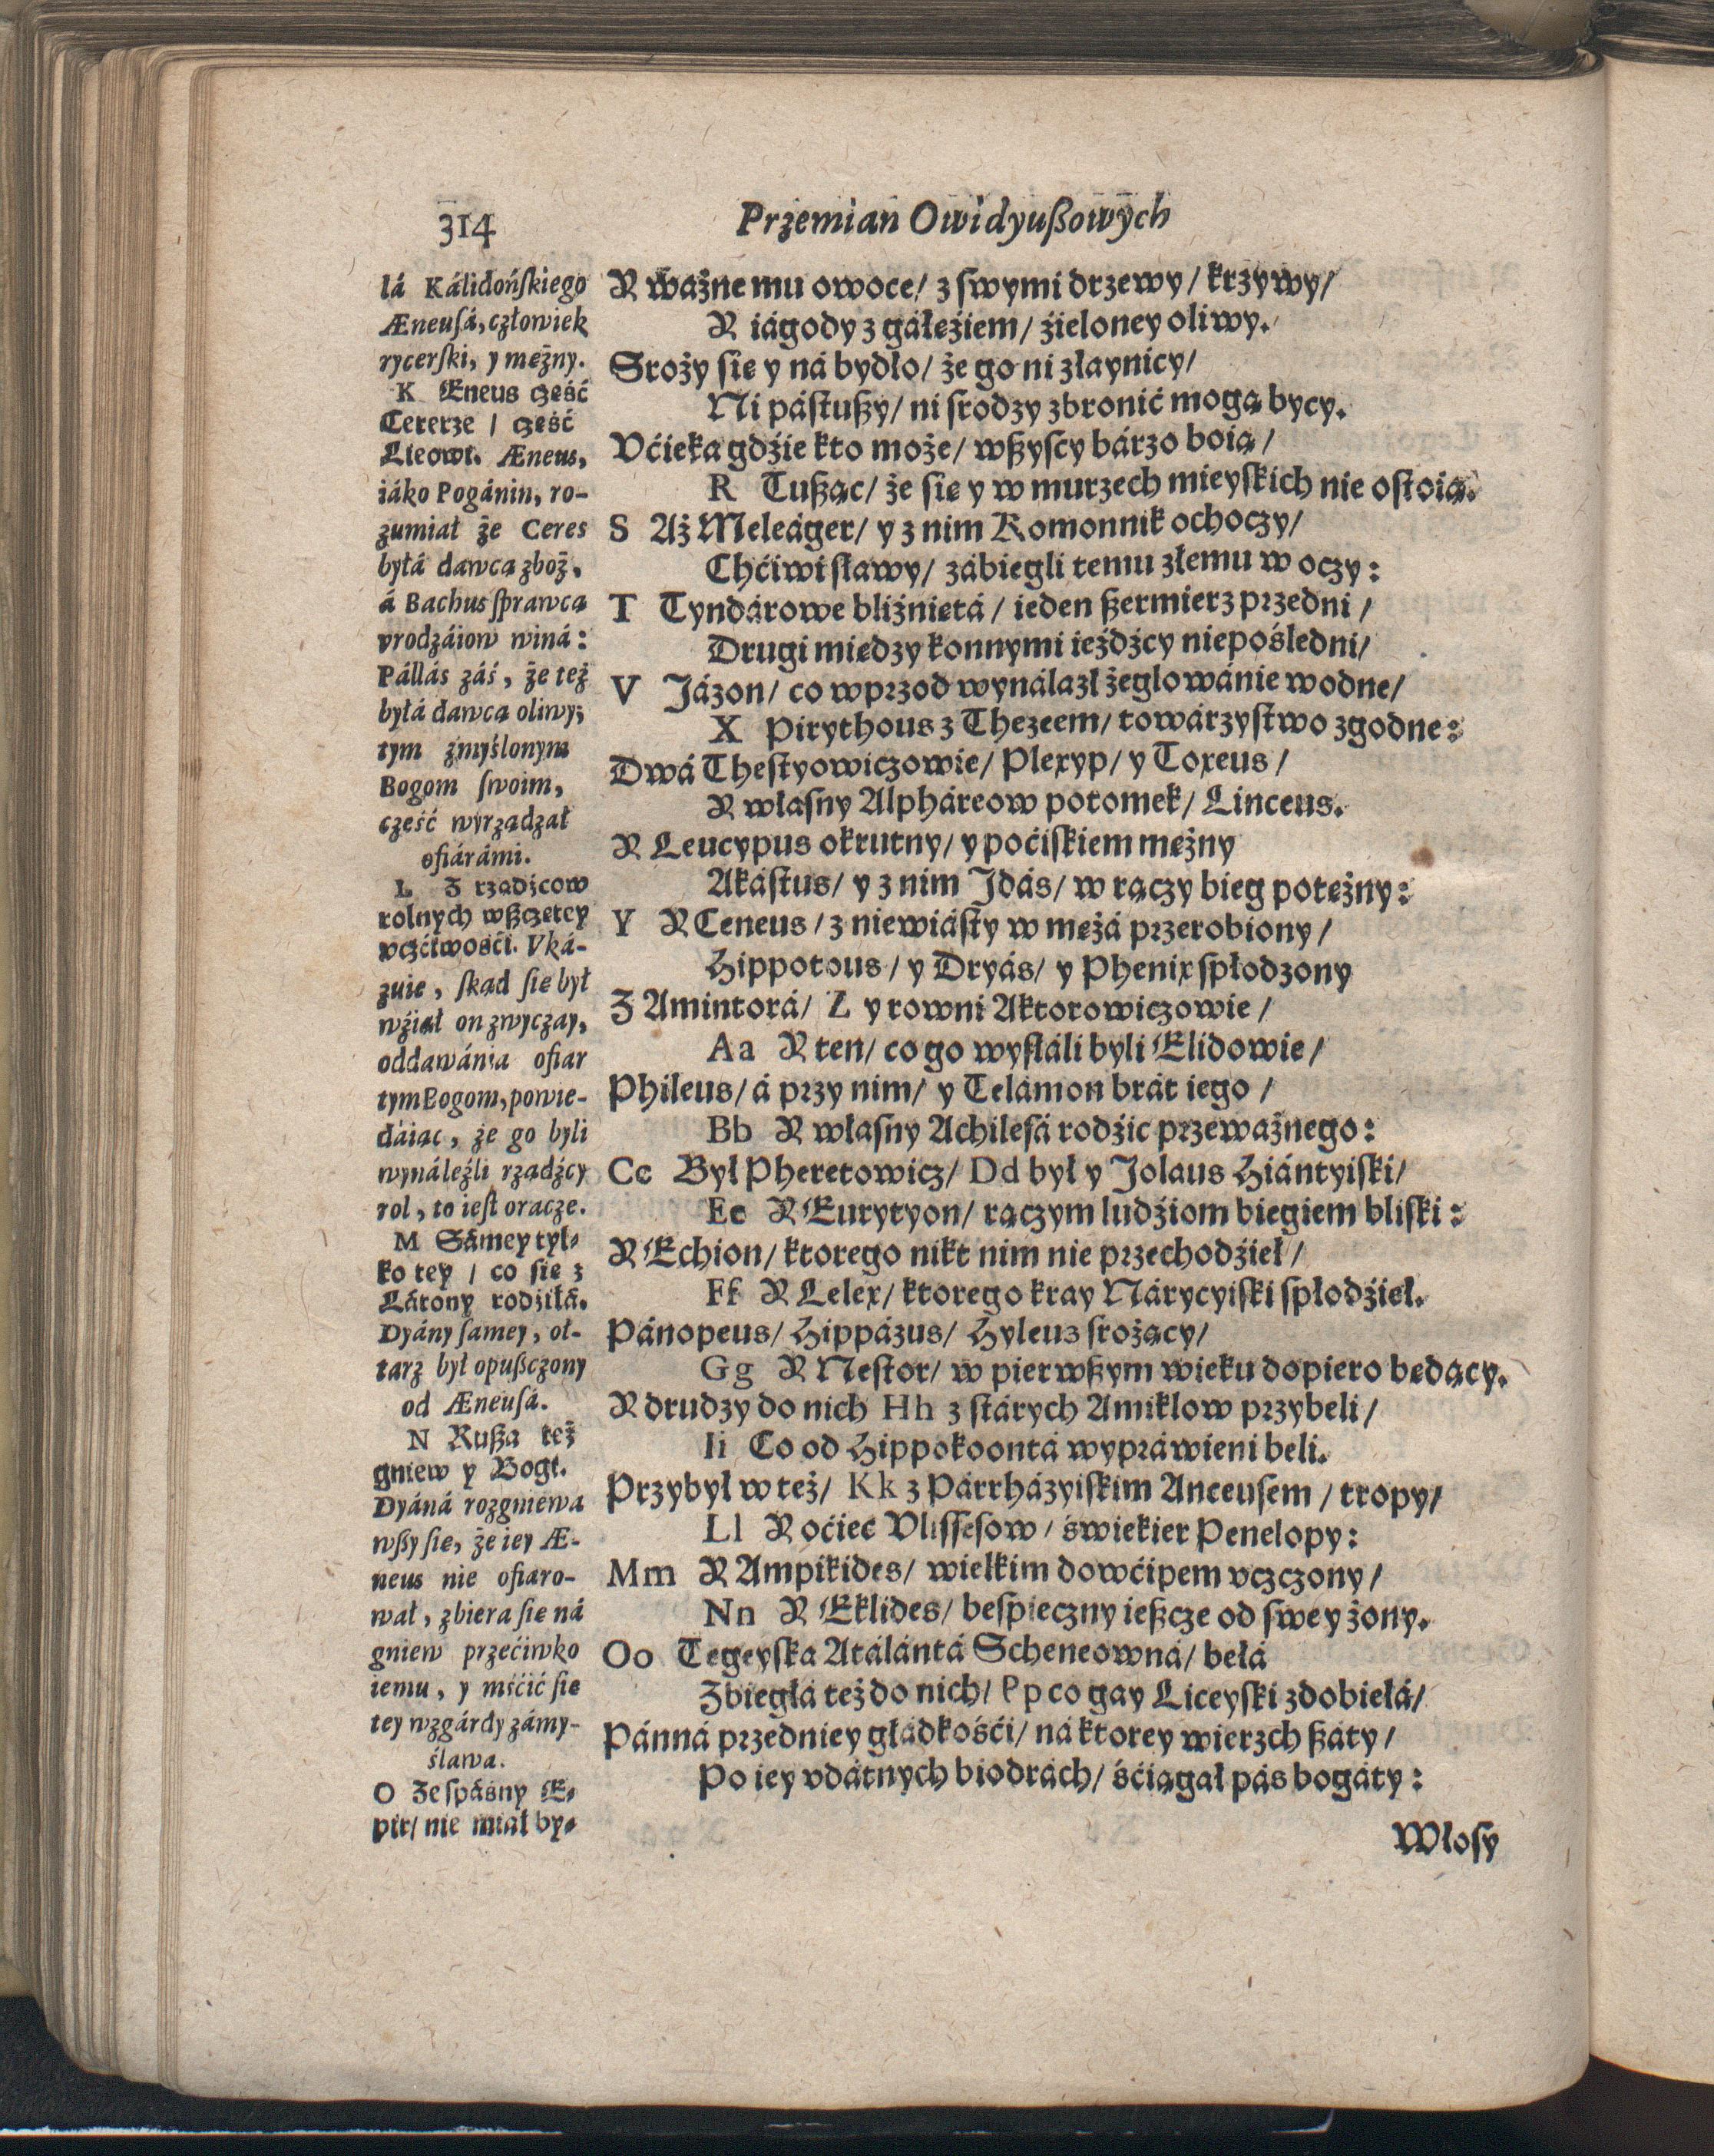 314
Przemian Owidyuszowych
lá Kálidońſkiego
Æneuſá, człowiek
rycerſki, y mężny.
K Eneus cześć
Cererze / cześć
Lieowi. Æneus,
iáko Pogánin, ro-
zumiał że Ceres
byłá dawcą zboż,
á Bachus ſprawcą
vrodzáiow winá:
Pállás záś, że też
byłá dawcą oliwy;
tym zmyślonym
Bogom ſwoim,
cześć wyrządzał
ofiárámi.
L Z rządźcow
rolnych wßczętey
vczćiwośći. Vká-
zuie, ſkąd ſie był
wźiął on zwyczay,
oddawánia ofiar
tym Bogom, powie-
dáiąc, że go byli
wynáleźli rządźcy
rol, to ieſt oracze.
M Sámey tyl-
ko tey / co ſie z
Látony rodźiłá.
Dyány ſamey, oł-
tarz był opußczony
od Æneuſá.
N Rußa też
gniew y Bogi.
Dyáná rozgniewa
wßy ſie, że iey Æ-
neus nie ofiaro-
wał, zbiera ſie ná
gniew przećiwko
iemu, y mśćić ſie
tey wzgárdy zámy-
ślawa.
O Ze ſpáśny E-
pir / nie miał by-
Y ważne mu owoce / z ſwymi drzewy / krzywy /
Y iágody z gáłęźiem / źieloney oliwy.
Sroży ſie y ná bydło / że go ni złaynicy /
Ni páſtußy / ni ſrodzy zbronić mogą bycy.
Vćieka gdźie kto może / wßyſcy bárzo boią /
R Tußąc / że ſie y w murzech mieyſkich nie oſtoią.
S Aż Meleáger / y z nim Komonnik ochoczy /
Chćiwi ſławy / zábiegli temu złemu w oczy:
T Tyndárowe bliźnietá / ieden ßermierz przedni /
Drugi między konnymi ieźdźcy niepośledni /
V Jázon / co wprzod wynálazł żeglowánie wodne /
X Pirythous z Thezeem / towárzyſtwo zgodne:
Dwá Theſtyowiczowie / Plexyp / y Toxeus /
Y własny Alpháreow potomek / Linceus.
Y Leucypus okrutny / y poćiſkiem mężny
Akáſtus / y z nim Jdás / w rączy bieg potężny:
Y Y Ceneus / z niewiáſty w mężá przerobiony /
Hippotous / y Dryás / y Phenix ſpłodzony
Z Amintorá / Z y rowni Aktorowiczowie /
Aa Y ten / co go wyſłáli byli Elidowie /
Phileus / á przy nim / y Telámon brát iego /
Bb Y własny Achileſá rodźic przeważnego:
Cc Był Pheretowicz / Dd był y Jolaus Hiántyiſki /
Ee Y Eurytyon / rączym ludźiom biegiem bliſki:
Y Echion / ktorego nikt nim nie przechodźieł /
Ff Y Lelex / ktorego kray Nárycyiſki ſpłodźieł.
Pánopeus / Hippázus / Hyleus ſrożący /
Gg Y Neſtor / w pierwßym wieku dopiero będący.
Y drudzy do nich Hh z ſtárych Amiklow przybeli /
Ii Co od Hippokoontá wypráwieni beli.
Przybył w też / Kk z Párrházyiſkim Anceuſem / tropy /
Ll Y oćiec Vliſſeſow / świekier Penelopy:
Mm Y Ampikides / wielkim dowćipem vczczony /
Nn Y Eklides / beſpieczny ießcze od ſwey żony.
Oo Tegeyſka Atálántá Scheneowná / bełá
Zbiegłá też do nich / Pp co gay Liceyſki zdobiełá /
Pánná przedniey głádkośći / ná ktorey wierzch ßáty /
Po iey vdátnych biodrách / śćiągał pás bogáty:
Włoſy